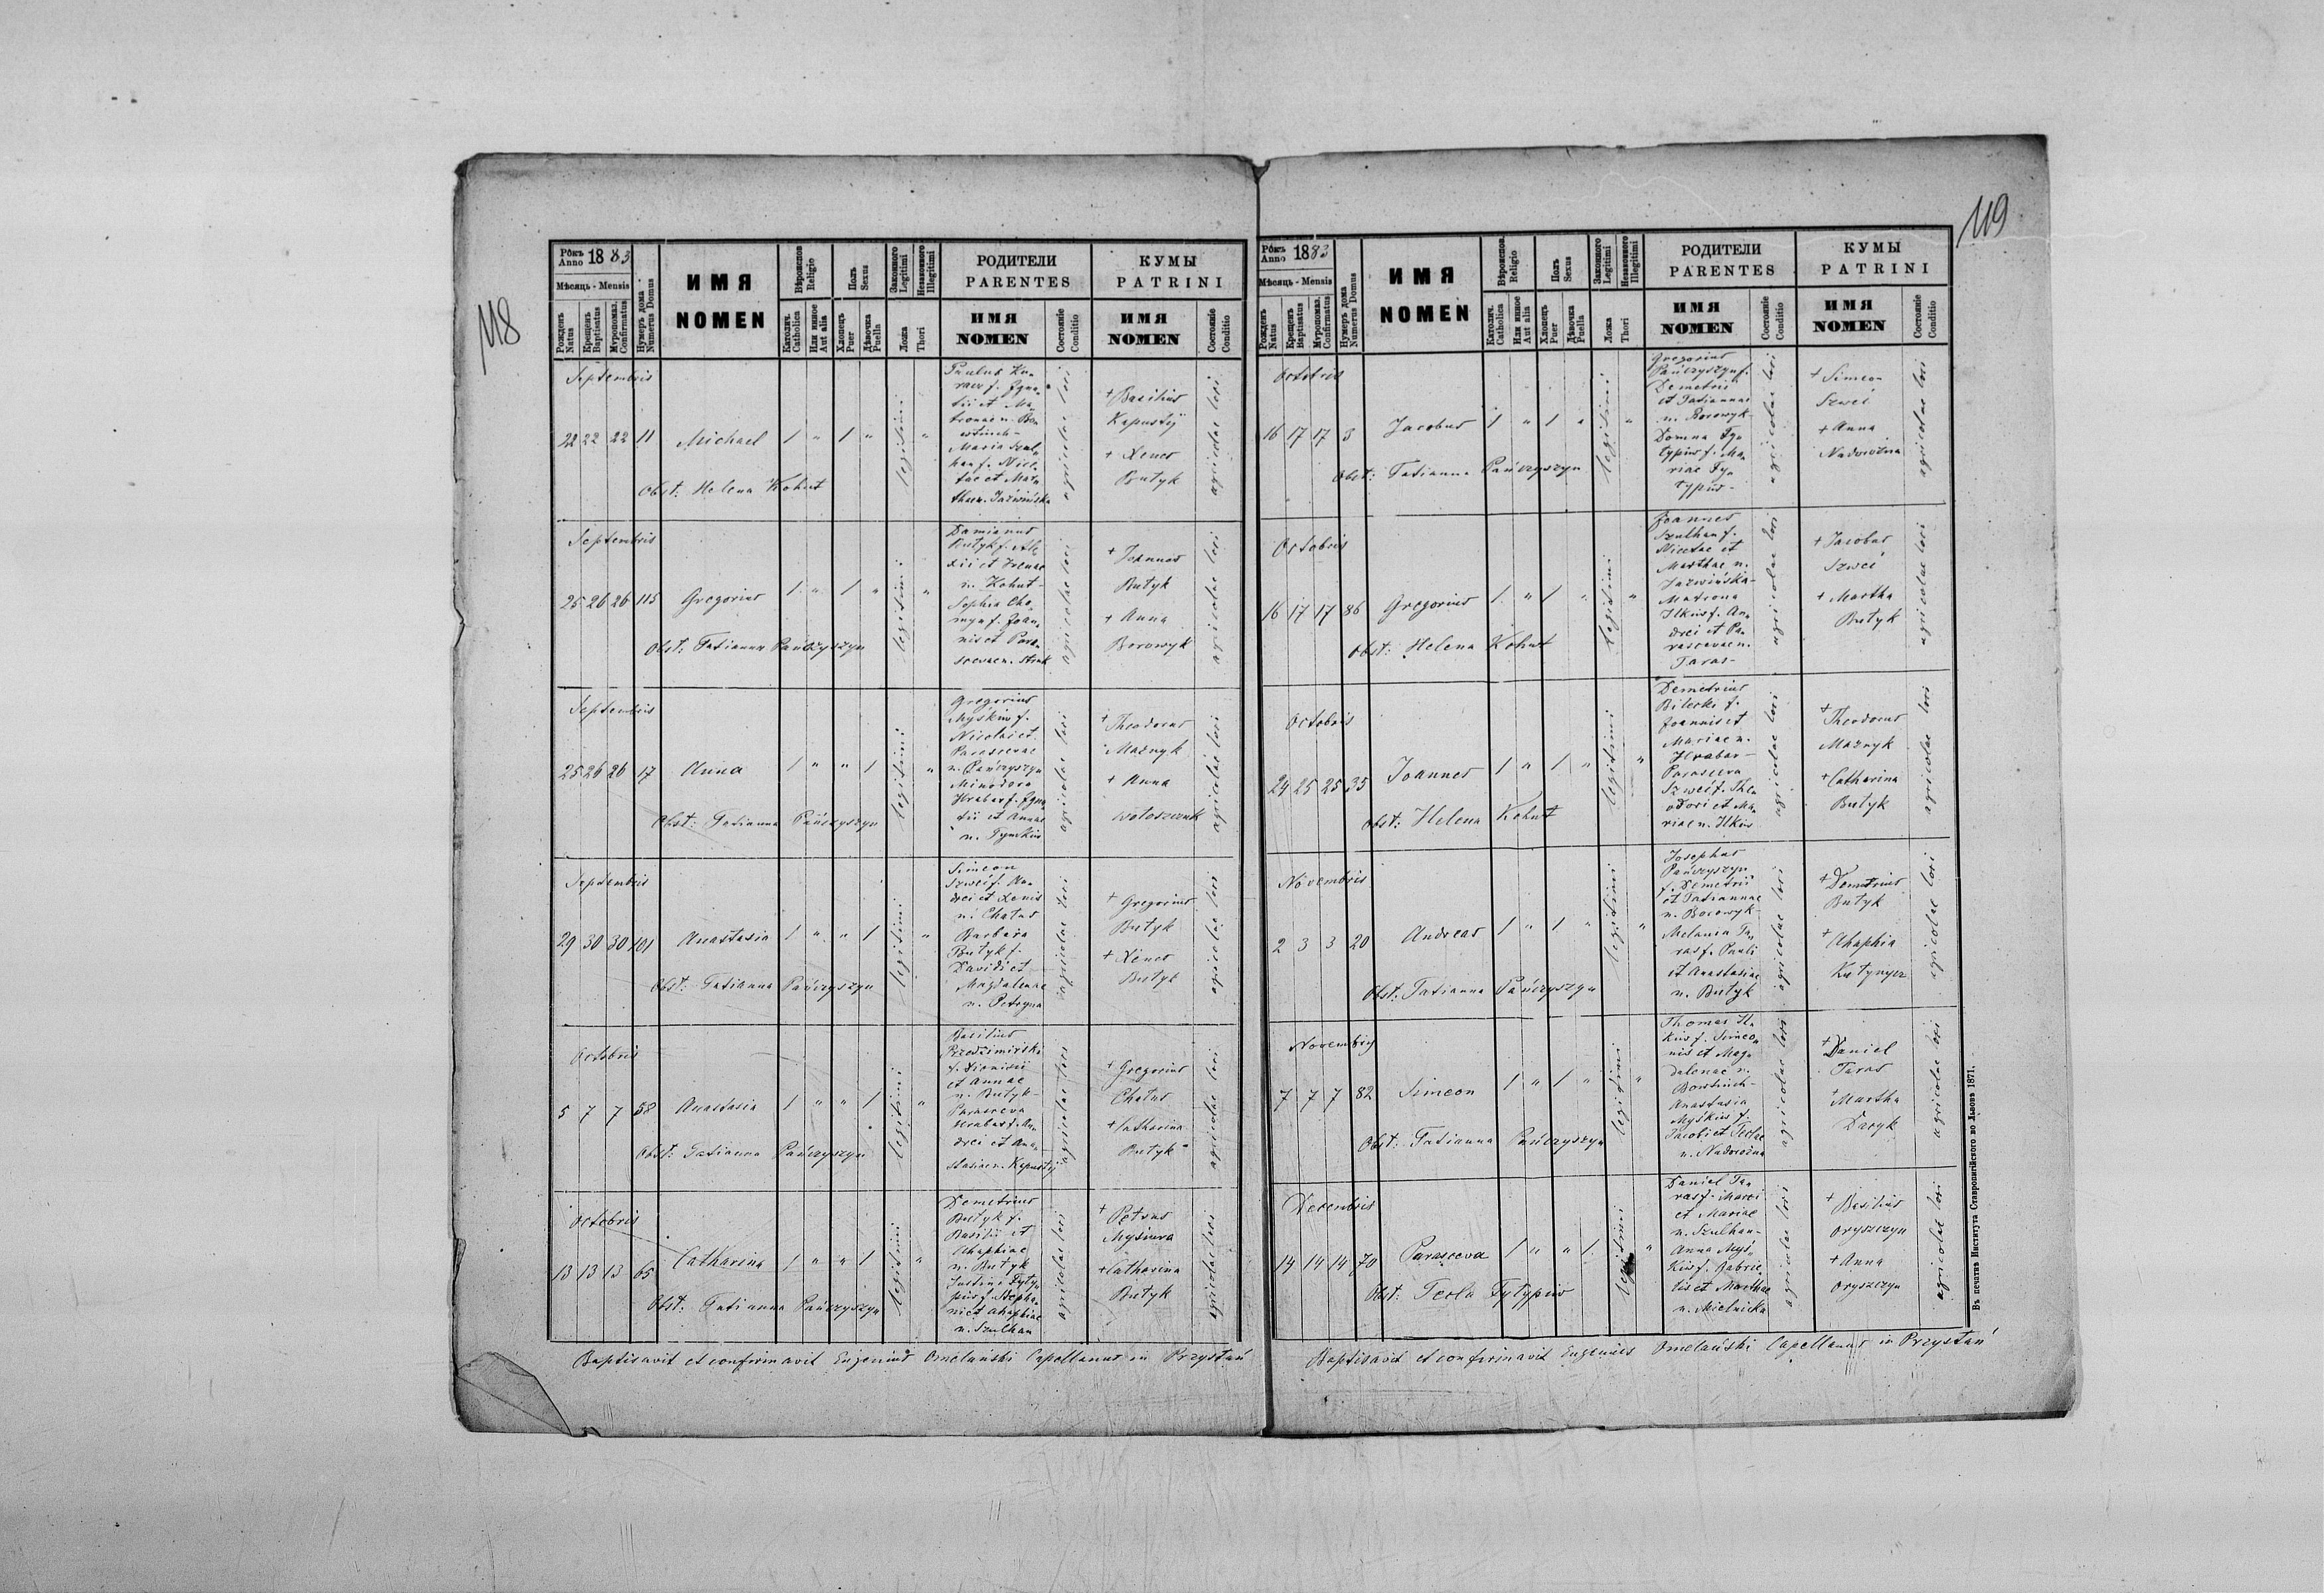 118
Рôкъ Anno 1883
Мѣсяць - Mensis
Рожденъ Natus
Крещенъ Baptisatus
Мѵропомаз. Confirmatus
Нумеръ дома Numerus Domus
ИМЯ NOMEN
Вѣроиспов. Religio
Католич. Catholica
Или иное Aut alia
Полъ Sexus
Хлопець Puer
Дѣвочка Puella
Законного Legitimi
Незаконного Illegitimi
Ложа Thori
РОДИТЕЛИ PARENTES
ИМЯ NOMEN
Состояніе Conditio
КУМЫ PATRINI
ИМЯ NOMEN
Состояніе Conditio
Septembris
22 22 22 11 Michael 1 " 1 " legitimi "
Paulus Ku
racz f. Igna
tii et Ma
tronae n. Bou
Maria Szul
han f. Nice
tae et Mar
thae n. Jaźwińska
agricolae loci
+ Basilius
Kapustij
+ Xenes
Butyk
agricolae loci
Obst: Helena Kohut
Septembris
25 26 26 115 Gregorius 1 " 1 " legitimi "
Damianus
Butyk f. Ale
xii et Irenae
n. Kohut-
Sophia Cho
myn f. Joan
nis et Para
scevae n.
agricolae loci
+ Joannes
Butyk
+ Anna
Borowyk
agricolae loci
Obst: Tatianna Pańczyszyn
Septembris
25 26 26 17 Anna 1 " " 1 legitimi "
Gregorius
Myśkiw f.
Nicolai et
Parascevae
n. Pańczyszyn
Minodora
Hrabar f. Igna
tii et Annae
n. Tymkiw
agricolae loci
+ Theodorus
Maznyk
+ Anna
Wołoszczuk
agricolae loci
Obst: Tatianna Pańczyszyn
Septembris
29 30 30 101 Anastasia 1 " " 1 legitimi "
Simeon
Szweć f. An
drei et Xenis
n. Chatus
Barbara
Butyk f.
Davidi et
Magdalenae
n. Petryna
agricolae loci
+ Gregorius
Butyk
+ Xenes
Butyk
agricolae loci
Obst: Tatianna Pańczyszyn
Octobris
5 7 7 58 Anastasia 1 " " 1 legitimi "
Basilius
Przedzimirski
f. Dionisii
et Annae
n. Butyk-
Parasceva
Hrabar f. An
drei et Ana
stasiae n. Kapustij
agricolae loci
+ Gregorius
Chatus
+ Catharina
Butyk
agricolae loci
Obst: Tatianna Pańczyszyn
Octobris
13 13 13 65 Catharina 1 " " 1 legitimi "
Demetrius
Butyk f.
Basilii et
Ahaphiae
n. Butyk
Justina Fyty
piw f. Stepha
ni et Ahaphiae
n. Szulhan
agricolae loci
+ Petrus
Mysiura
+ Catharina
Butyk
agricolae loci
Obst: Tatianna Pańczyszyn
Baptisavit et confirmavit Eugenius Omelański Capellanus in Przystań
119
Рôкъ Anno 1883
Мѣсяць - Mensis
Рожденъ Natus
Крещенъ Baptisatus
Мѵропомаз. Confirmatus
Нумеръ дома Numerus Domus
ИМЯ NOMEN
Вѣроиспов. Religio
Католич. Catholica
Или иное Aut alia
Полъ Sexus
Хлопецъ Puer
Дѣвочка Puella
Законного Legitimi
Незаконного Illegitimi
Ложа Thori
РОДИТЕЛИ PARENTES
ИМЯ NOMEN
Состояніе Conditio
КУМЫ PATRINI
ИМЯ NOMEN
Состояніе Conditio
Octobris
16 17 17 3 Jacobus 1 " 1 " legitimi "
Gregorius
Pańczyszyn f.
Demetrii
et Tatiannae
n. Borowyk-
Domna Fy
typiw f. Ma
riae Fy
typiw-
agricolae loci
+ Simeon
Szweć
+ Anna
Nadwiózna
agricolae loci
Obst: Tatianna Pańczyszyn
Octobris
16 17 17 86 Gregorius 1 " 1 " legitimi "
Joannes
Szulhan f.
Nicetae et
Marthae n.
Jazwińska-
Matrona
Ilkiw f. An
drei et Pa
rascevae n.
Taras-
agricolae loci
+ Jacobus
Szweć
+ Martha
Butyk
agricolae loci
Obst: Helena Kohut
Octobris
24 25 25 35 Joannes 1 " 1 " legitimi "
Demetrius
Bilecki f.
Joannis et
Mariae n.
Hrabar-
Parasceva
Szweć f. The
odori et Ma
riae n. Ilkiw
agricolae loci
+ Theodorus
Maznyk
+ Catharina
Butyk
agricolae loci
Obst: Helena Kohut
Novembris
2 3 3 20 Andreas 1 " 1 " legitimi "
Josephus
Pańczyszyn
f. Demetrii
et Tatiannae
n. Borowyk-
Melania Ta
ras f. Pauli
et Anastasiae
n. Butyk
agricolae loci
+ Demetrius
Butyk
+ Ahaphia
Kutynycz
agricolae loci
Obst: Tatianna Pańczyszyn
Novembris
7 7 7 82 Simeon 1 " 1 " legitimi "
Thomas Il
kiw f. Simeo
nis et Mag
dalenae n.
Anastasia
Myśkiw f.
Jacobi et Teclae
n. Nadwiózna
agricolae loci
+ Daniel
Taras
+ Martha
Dacyk
agricolae loci
Obst: Tatianna Pańczyszyn
Decembris
14 14 14 70 Parasceva 1 " " 1 legitimi "
Daniel Ta
ras f. Marci
et Mariae
n. Szulhan-
Anna Myś
kiw f. Gabrie
lis et Marthae
n. Mielnicka
agricolae loci
+ Basilius
Oryszczyn
+ Anna
Oryszczyn
agricolae loci
Obst: Tecla Fytypiw
Baptisavit et confirmavit Eugenius Omelański Capellanus in Przystań
Въ печатнѣ Института Ставропигійского во Львовѣ 1871.